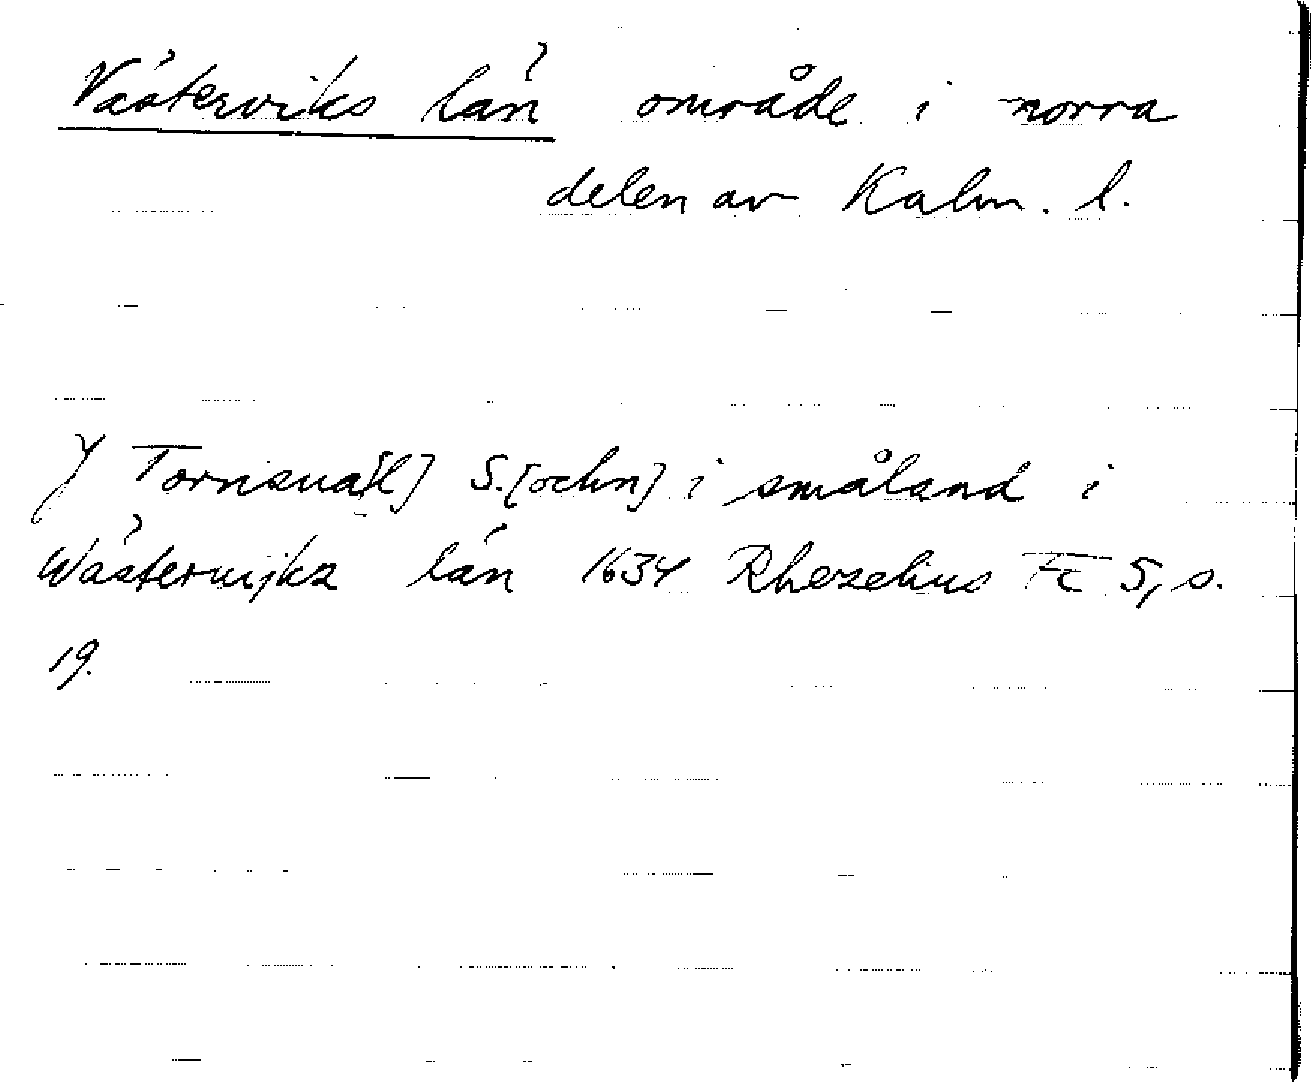 Västerviks län område i norra
delen av Kalm. l.
Y Tornsua[l] S.[ochn] i småland i
Wästerwijkz län 1634 Rhezelius Fc 5, s.
19.